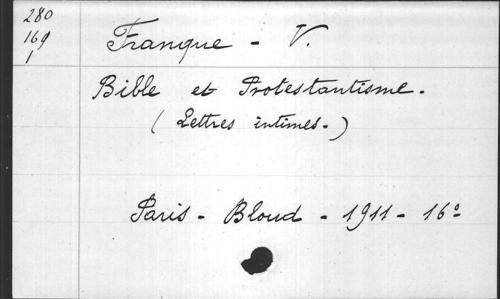 280
169
1
Franque - V.
Bible et Protestantisme.
(Lettres intimes.)
Paris - Bloud - 1911 - 16º